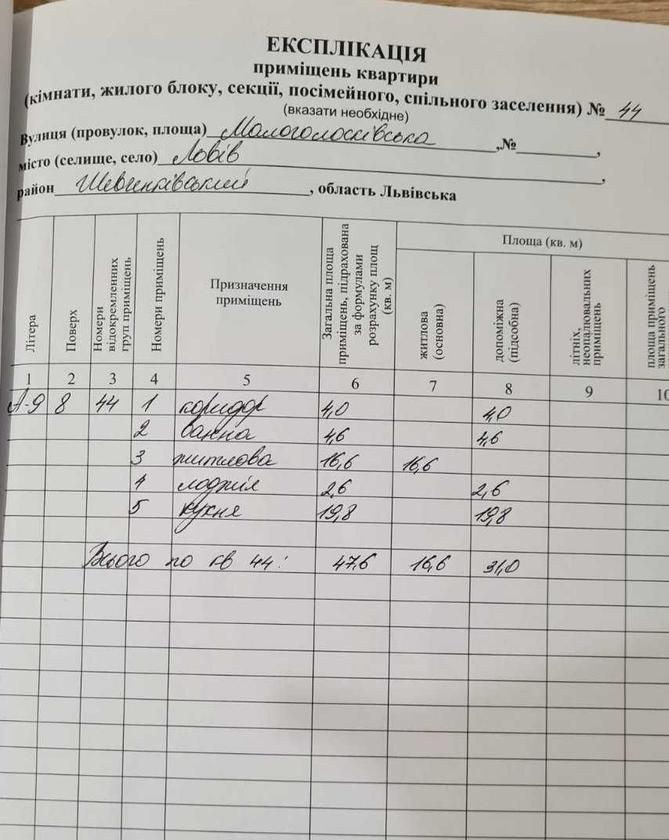 ЕКСПЛІКАЦІЯ
приміщень квартири
(кімнати, жилого блоку, секції, посімейного, спільного заселення) № 44
(вказати необхідне)
Вулиця (провулок, площа) Малоголосківська ,№ ,
місто (селище, село) Львів ,
район Шевченківський , область Львівська
Літера
Поверх
Номери відокремленних груп приміщень
Номери приміщень
Призначення приміщень
Загальна площа приміщень, підрахована за формулами розрахунку площ (кв. м)
Площа (кв. м)
житлова (основна)
допоміжна (підсобна)
літніх, неопалювальних приміщень
площа приміщень загального
1 2 3 4 5 6 7 8 9 10
А-9 8 44 1 коридор 4,0 4,0
2 ванна 4,6 4,6
3 житлова 16,6 16,6
4 лоджія 2,6 2,6
5 кухня 19,8 19,8
Всього по кв 44: 47,6 16,6 31,0